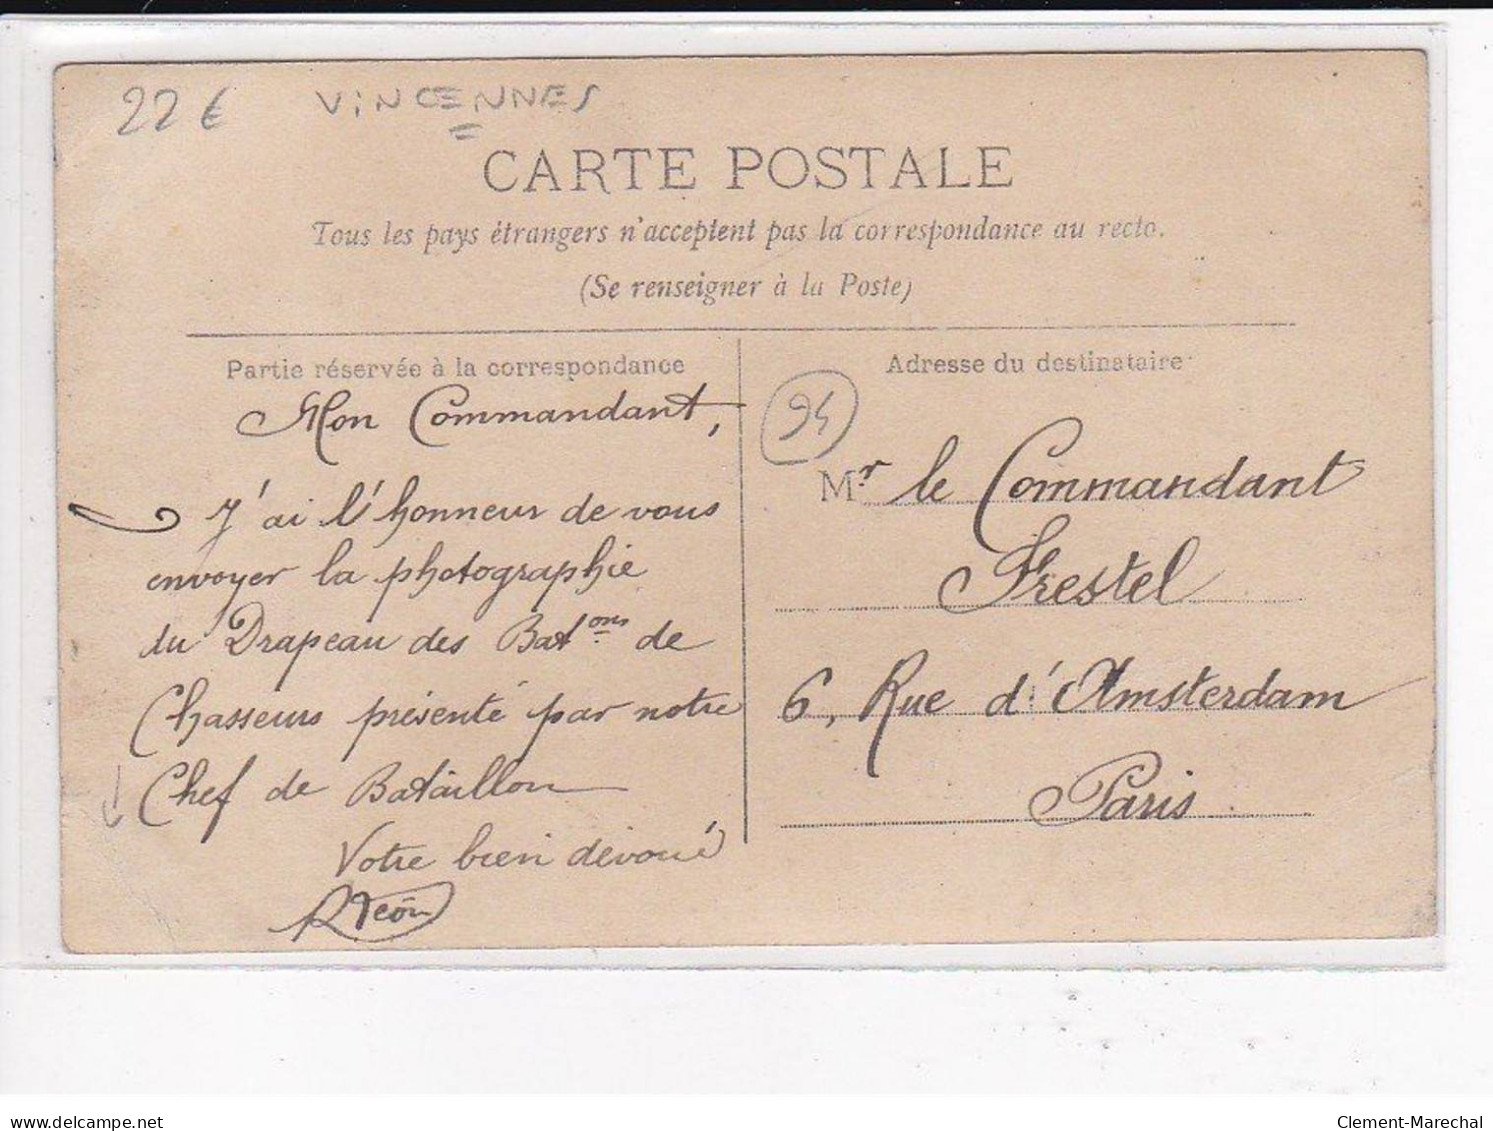 22 €
VINCENNES
CARTE POSTALE
Tous les pays étrangers n'acceptent pas la correspondance au recto.
(Se renseigner à la Poste)
Partie réservée à la correspondance
Mon Commandant,
J'ai l'honneur de vous
envoyer la photographie
du Drapeau des Bat.ons de
Chasseurs présenté par notre
Chef de Bataillon
Votre bien dévoué
Adresse du destinataire
94
Mr. le Commandant
Frestel
6, Rue d'Amsterdam
Paris
www.delcampe.net
Clement-Marechal